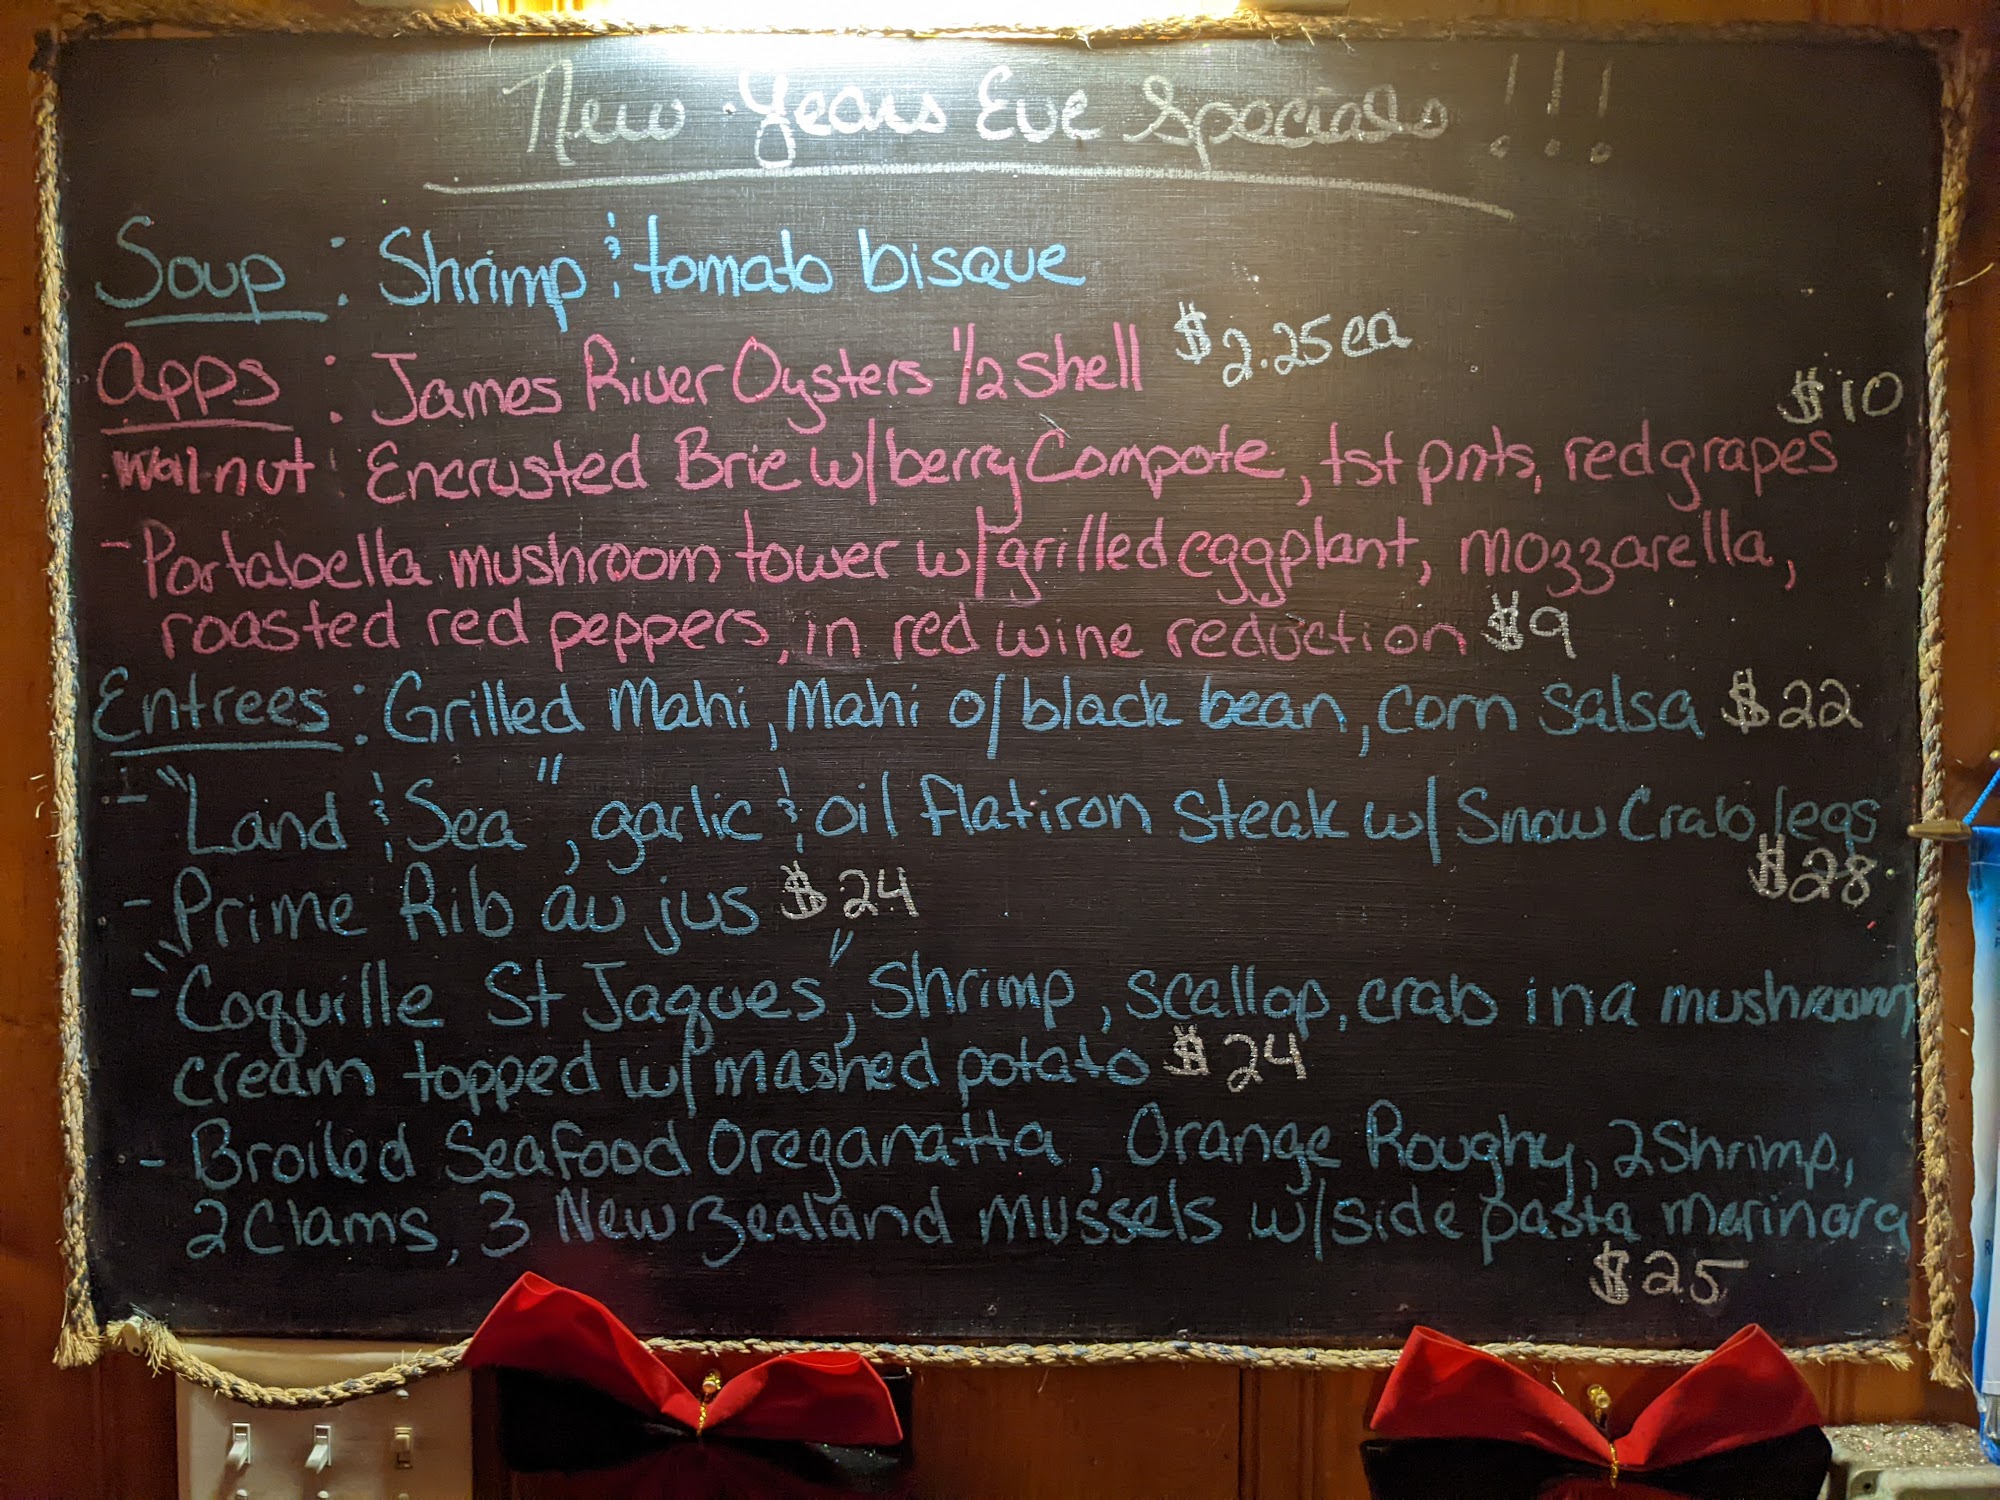 New Years Eve Specials!!!
Soup: Shrimp & tomato bisque
Apps: James River Oysters 1/2 shell $2.25 ea
$10
walnut Encrusted Brie w/ berry Compote, tst pnts, red grapes
- Portabella mushroom tower w/ grilled eggplant, mozzarella,
roasted red peppers, in red wine reduction $9
Entrees: Grilled Mahi, Mahi o/ black bean, corn salsa $22
- "Land & Sea", garlic & oil flatiron steak w/ Snow Crab legs
$28
- Prime Rib au jus $24
- "Coquille St Jaques", Shrimp, scallop, crab in a mushroom
cream topped w/ mashed potato $24
- Broiled Seafood Oreganatta, Orange Roughy, 2 Shrimp,
2 Clams, 3 New Zealand mussels w/ side pasta merinara
$25